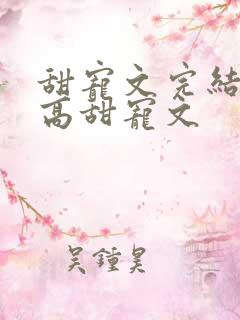 甜寵文完結
高甜寵文
吴鍾昊